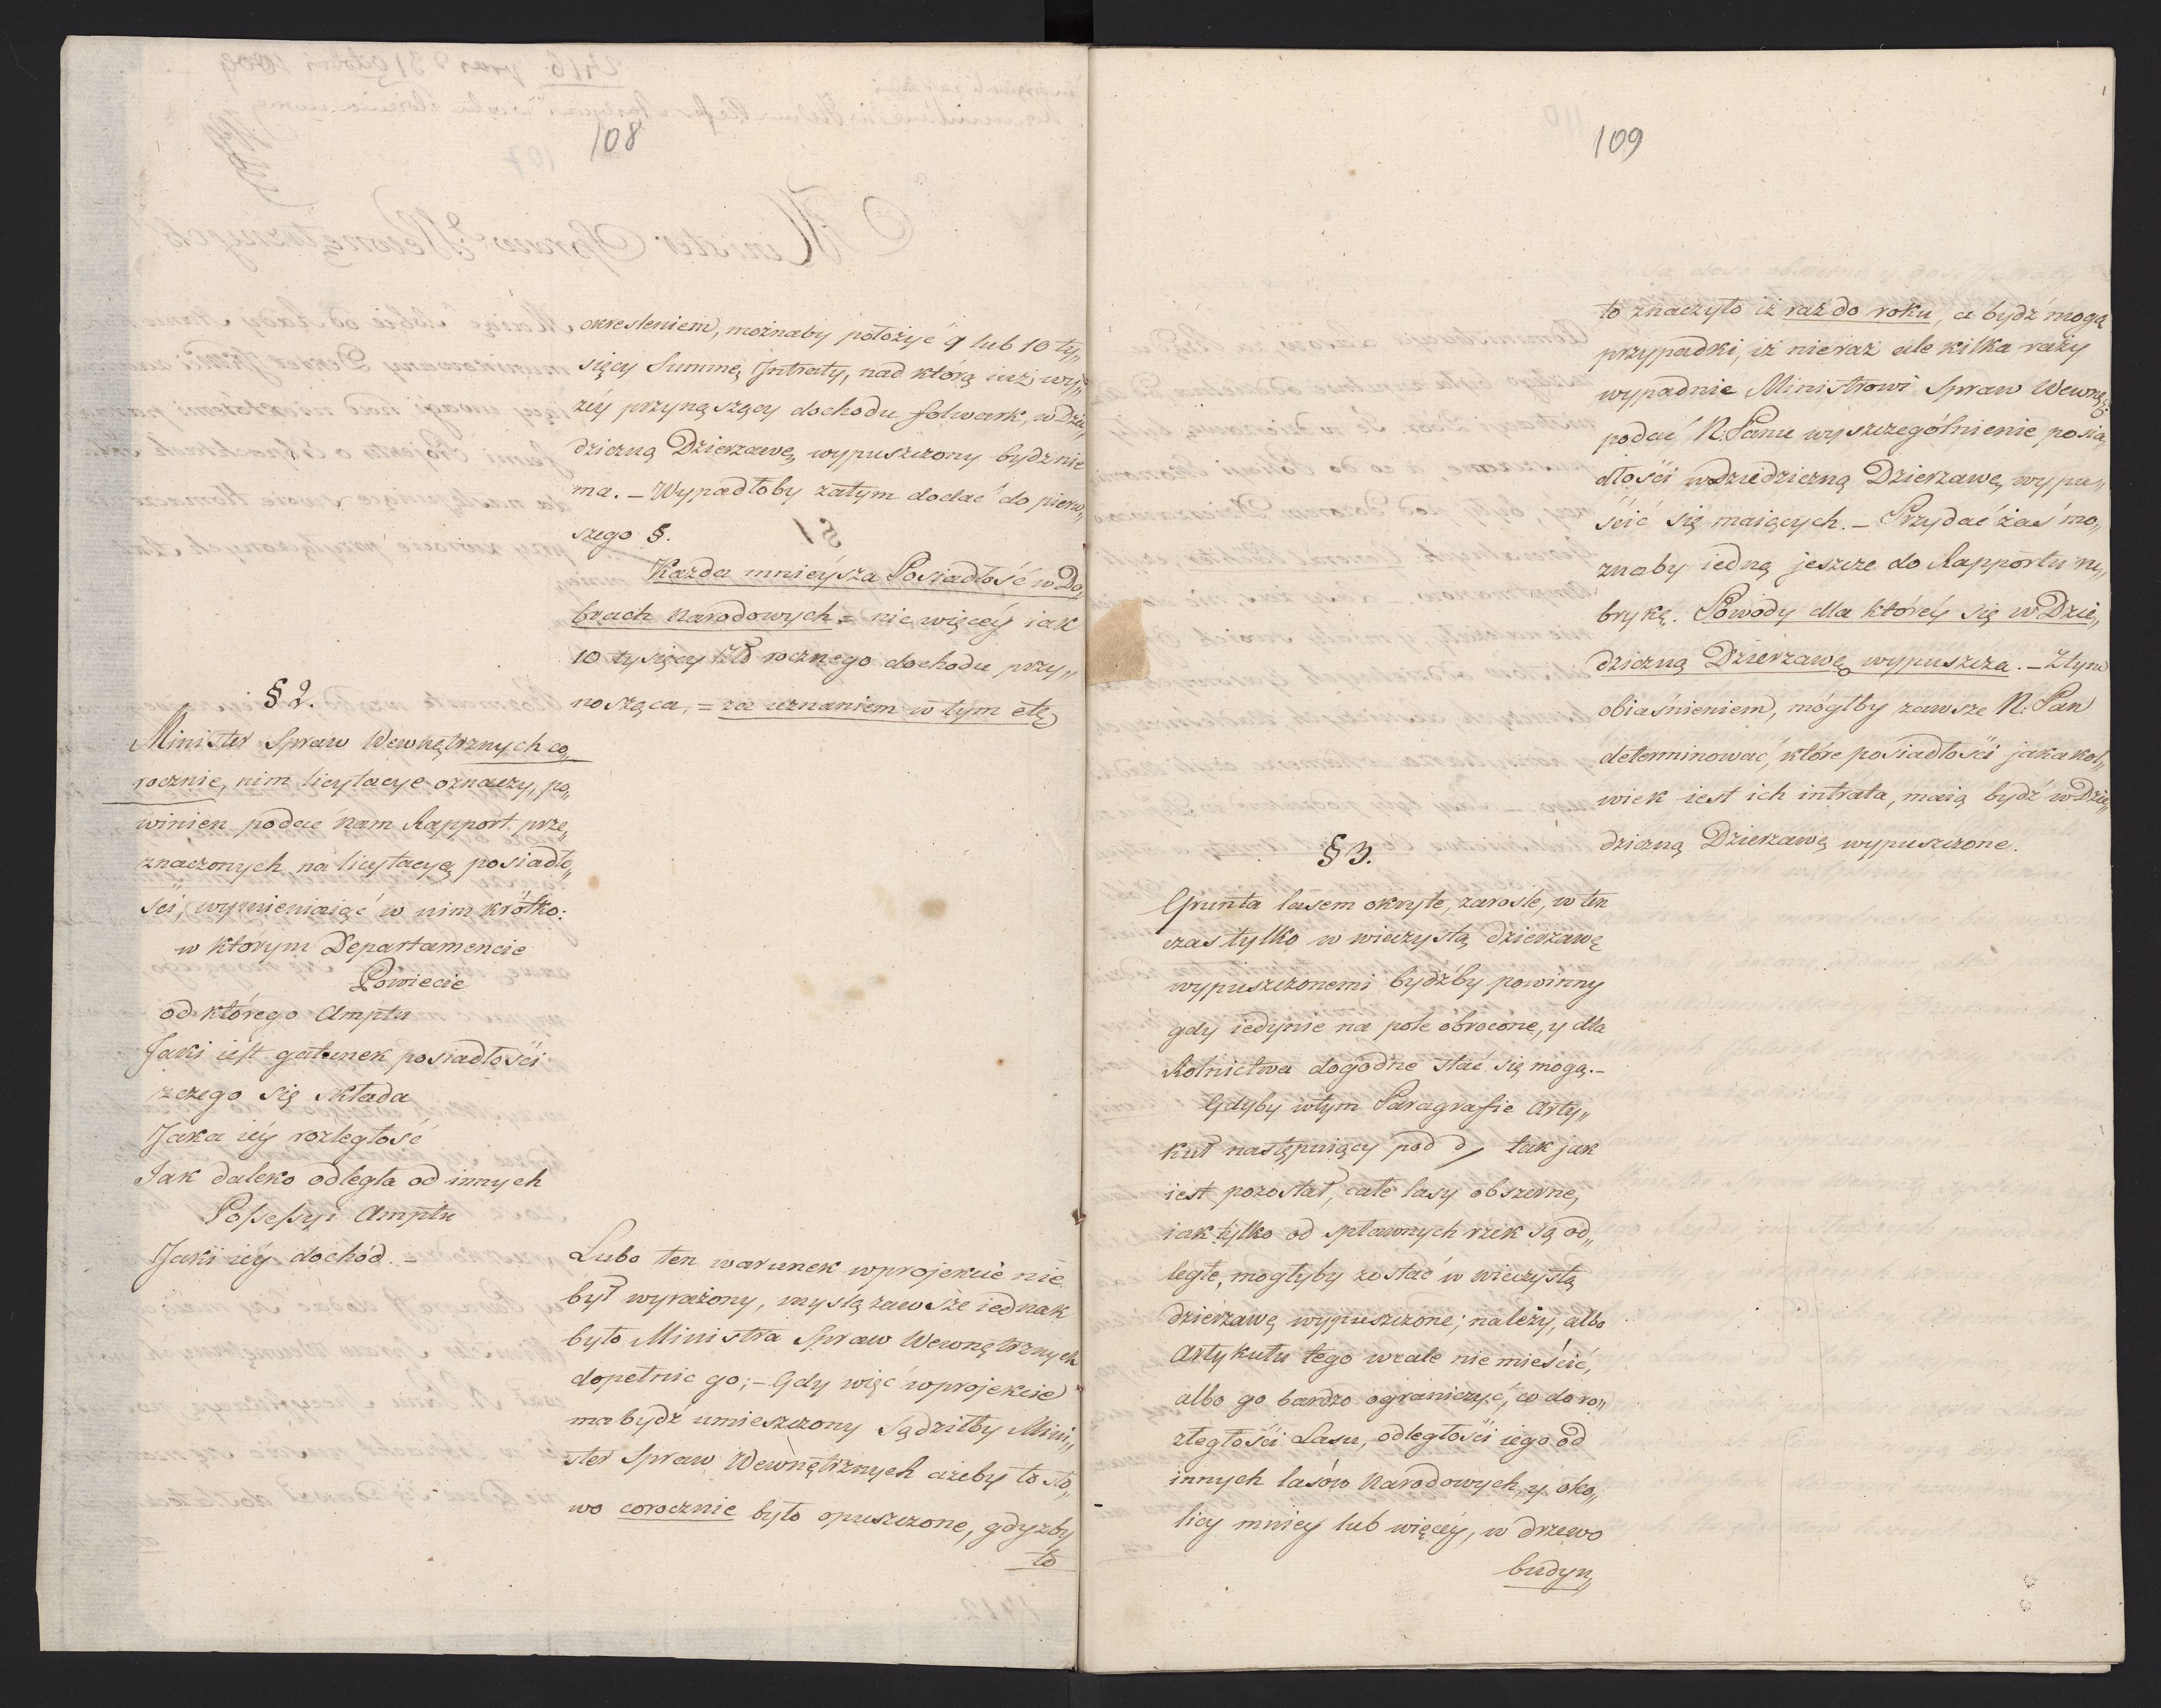 108
okresleniem, możnaby położyć 9 lub 10 ty„
sięcy Summę Intraty, nad którą iuż wyż„
zéy przynąszący dochodu folwark, w Dzie„
dziczną Dzierzawę, wypuszczony bydz nie
ma. – Wypadłoby zatym dodać do pierw„
szego §.
Kazda mnieysza Posiadłość w Do„
brach Narodowych = nie więcéy iak
10 tysięcy Złł rocznego dochodu przy„
nosząca, = za uznaniem w tym etc
§ 2.
Minister Spraw Wewnętrznych co„
rocznie, nim licytacye oznaczy, po„
winien podać Nam Rapport prze„
znaczonych na licytacyą posiadło„
ści, wymieniaiąc w nim krótko:
w którym Departamencie
Powiecie
od którego Amptu
Jaki iest gatunek posiadłości
z czego się składa
Jaka iéy rozległość
Jak daleko odległa od innych
Possessyi Amptu
Jaki iéy dochód. –
Lubo ten warunek w projekcie nie
był wyrażony, myślą zawsze iednak
było Ministra Spraw Wewnętrznych
dopełnic go; – Gdy więc w projekcie
ma bydź umieszczony Sądziłby Mini„
ster Spraw Wewnętrznych ażeby to sło„
wo corocznie było opuszczone, gdyżby
to
109
to znaczyło iż raz do roku, a bydź mogą
przypadki, iż nieraz ale kilka razy
wypadnie Ministrowi Spraw Wewnę:
podać N: Panu wyszczególnienie posia„
dłości w dziedziczną Dzierzawę, wypu„
ścić się maiących. – Przydać zaś mo„
żnaby iedną jeszcze do Rapportu ru„
brykę. Powody dla któréy się w Dzie„
dziczną Dzierzawę wypuszcza. – Z tym
obiaśnieniem, mógłby zawsze N: Pan
determinować, które posiadłości jakakol„
wiek iest ich intrata, maią bydź w Dzie„
dziczną Dzierzawę wypuszczone.
§ 3.
Grunta lasem okryte, zarosłe, w ten
czas tylko w wieczystą dzierzawę
wypuszczonemi bydźby powinny
gdy iedynie na pole obrocone, y dla
Rolnictwa dogodne stać się mogą. –
Gdyby w tym Paragrafie Arty„
kuł następuiący pod d/ tak jak
iest pozostał, całe lasy obszerne,
iak tylko od spławnych rzek są od„
ległe, mogłyby zostać w wieczystą
dzierzawę wypuszczone; należy, albo
Artykułu tego wcale nie mieścić,
albo go bardzo ograniczyć, co do ro„
złegłości Lasu, odległości iego od
innych lasów Narodowych, y oko„
licy mniey lub więcéy, w drzewo
budyn„